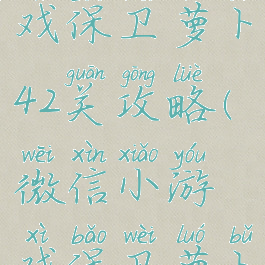 戏保卫萝卜
guān gōng lüè
42关攻略(
wēi xìn xiǎo yóu
微信小游
xì bǎo wèi luó bǔ
戏保卫萝卜